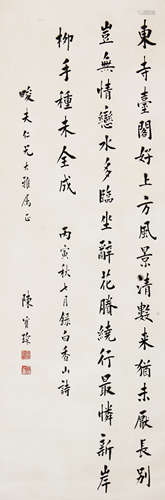 東寺臺閣好上方風景清數来猶未厭長別
豈無情戀水多臨坐辭花賸繞行最憐新岸
柳手種未全成 丙寅秋七月録白香山詩
仁兄大雅属正
陳寶琛